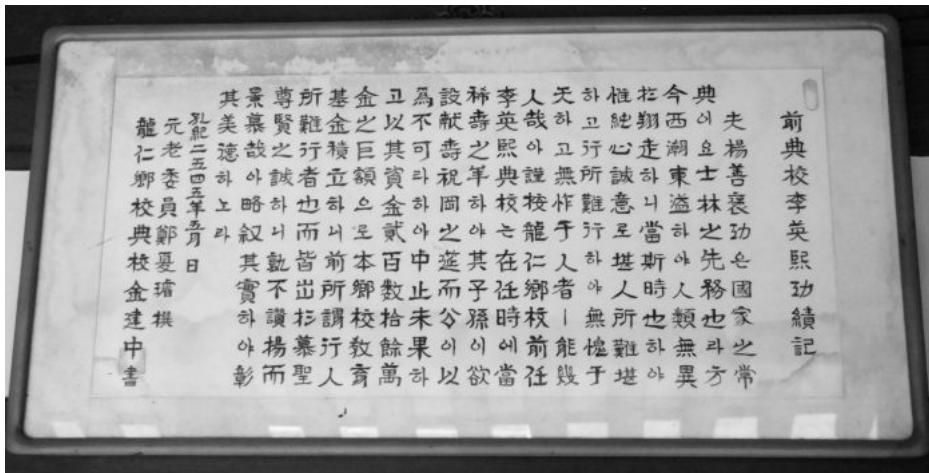 前典校李英熙功績記
夫楊善褒功은國家之常
典이요士林之先務也라方
今西潮東溢하야人類無異
於翔走하니當斯時也하야
惟純心誠意로堪人所難堪
하고行所難行하야無愧于
天하고無怍于人者ㅣ能幾
人哉아謹按龍仁鄕校前任
李英熙典校는在任時에當
稀壽之年하야其子孫이欲
設献壽祝岡之筵而公이以
爲不可라하야中止未果하
고以其資金貳百數拾餘萬
金之巨額으로本鄕校敎育
基金積立하니前所謂行人
所難行者也而皆出於慕聖
尊賢之誠하니孰不讚楊而
景慕哉아略叙其實하야彰
其美德하노라
孔紀二五四五年五月 日
元老委員鄭 撰
龍仁鄕校典校金建中書